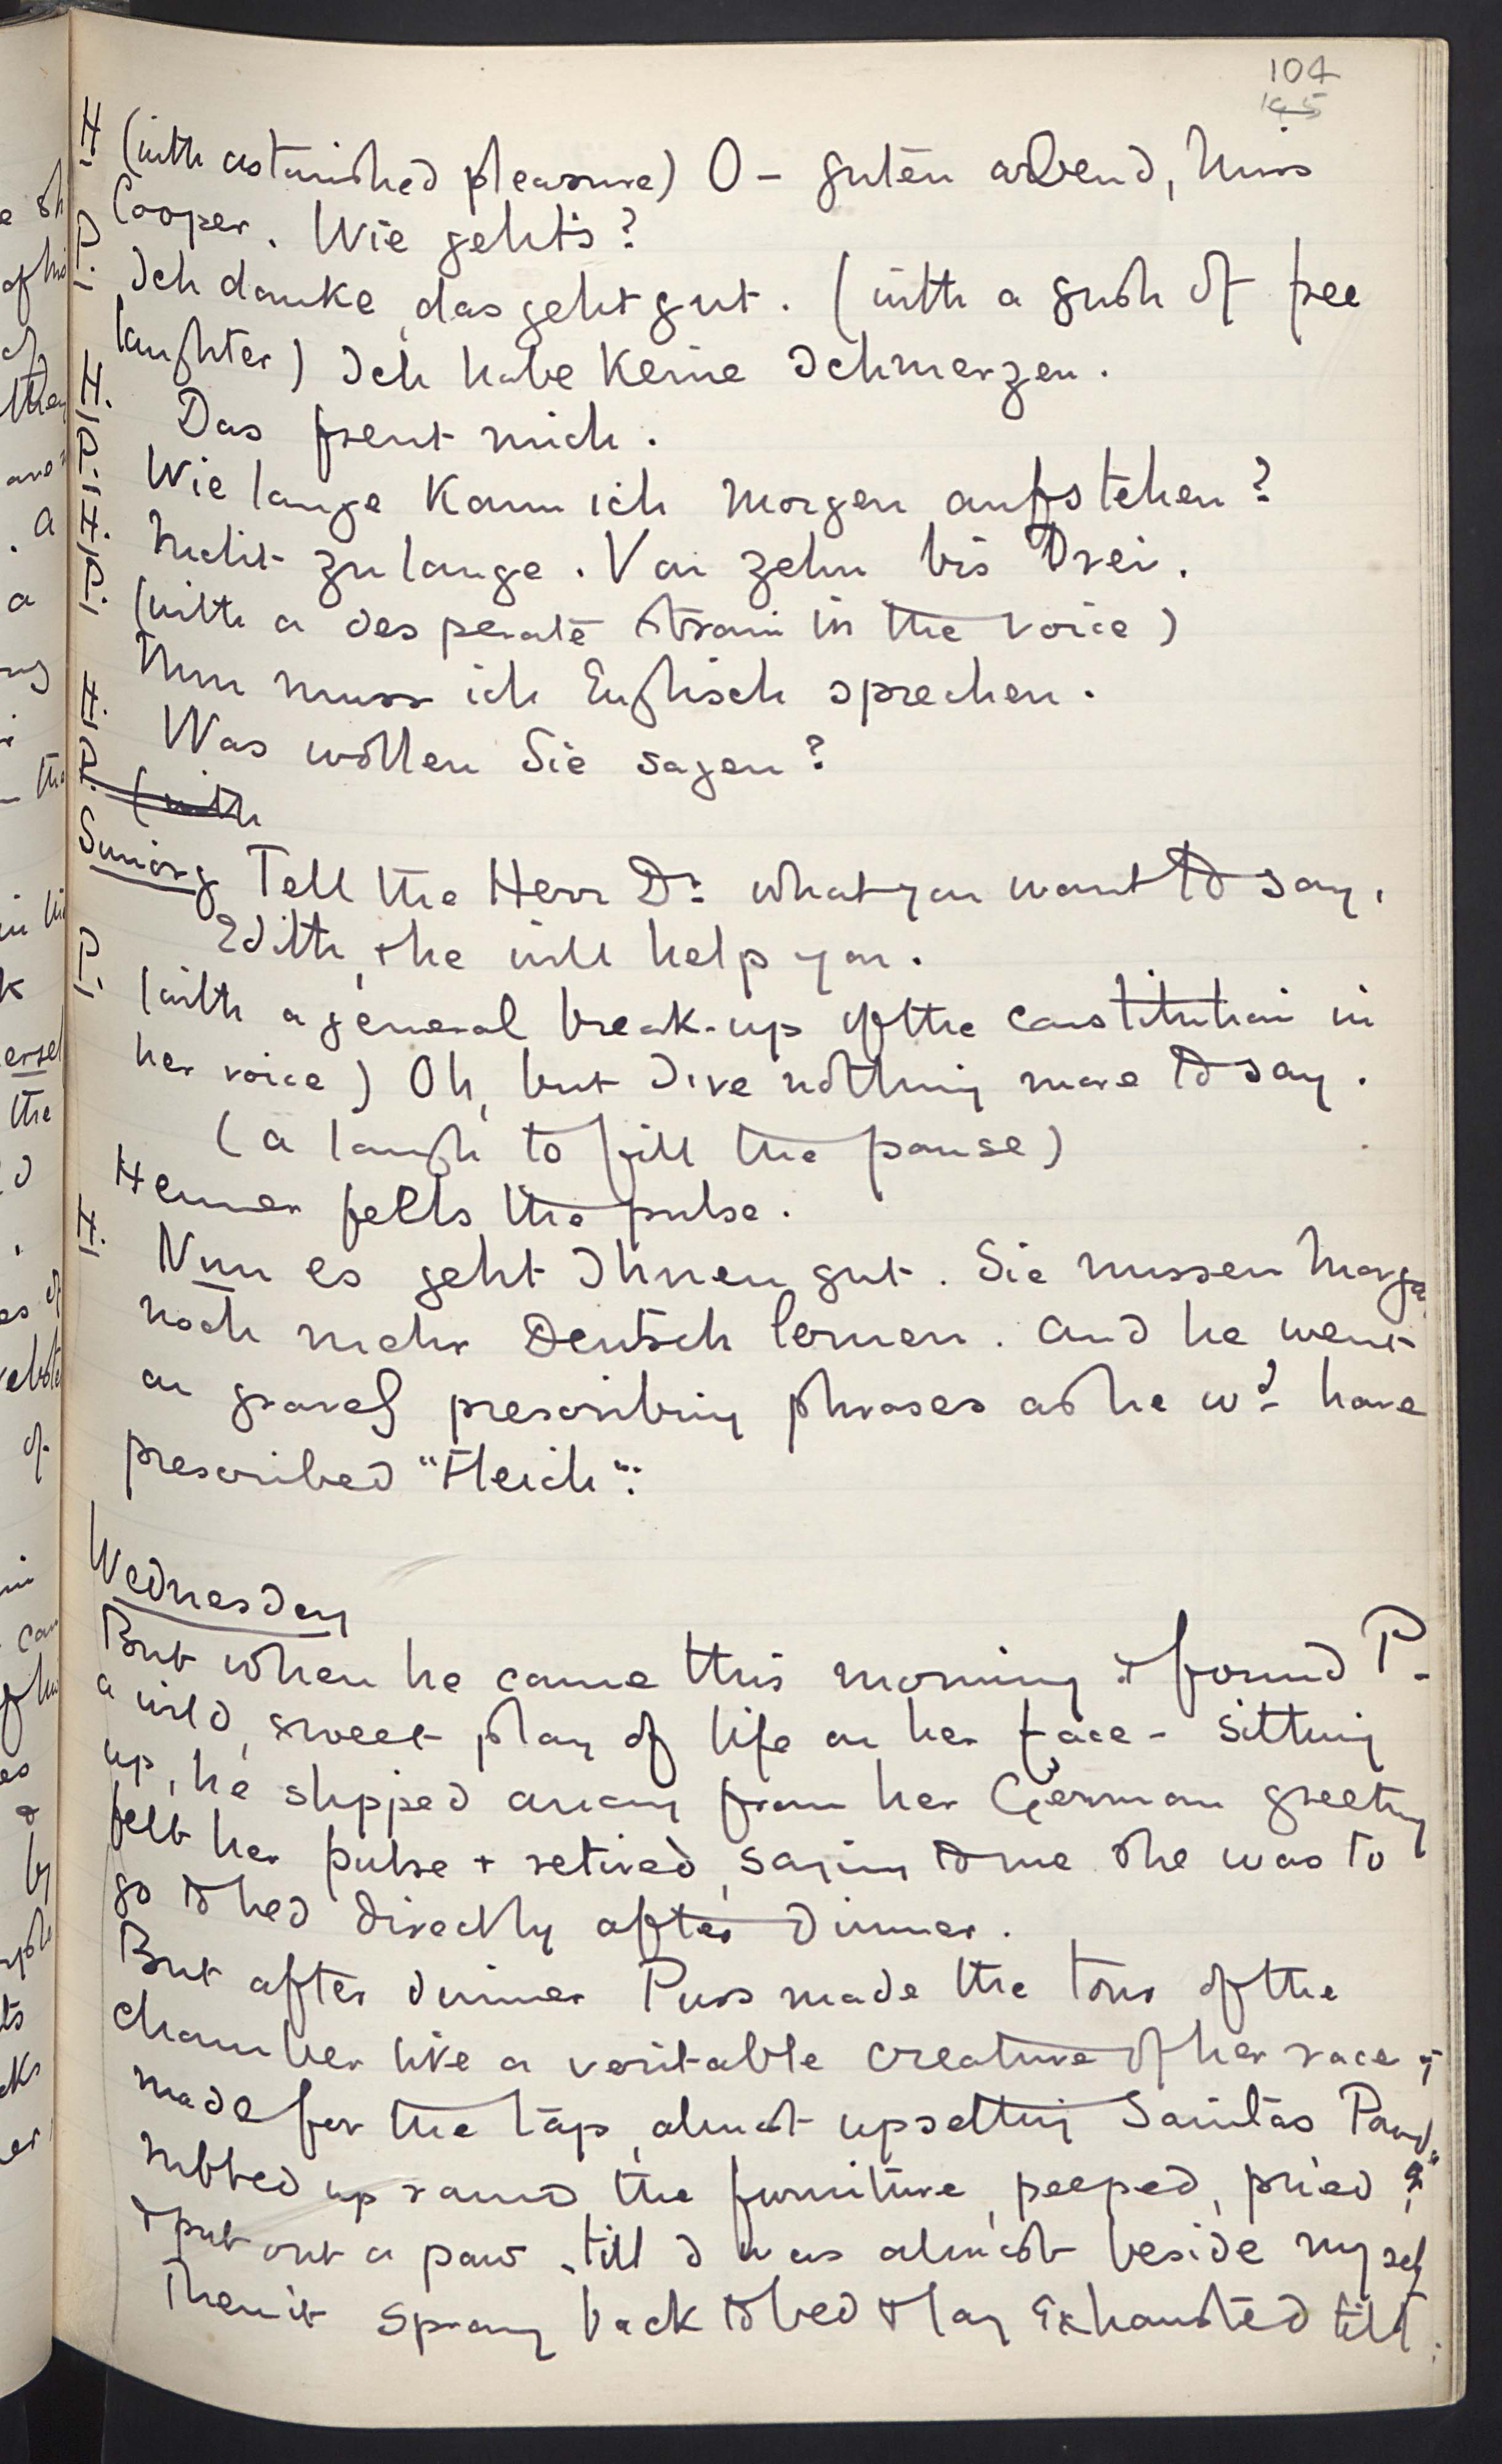 104
H. (with astonished pleasure) O – guten abend, Miss
Cooper. Wie geht's?
P. Ich danke, das geht gut. (with a gush of free
laughter) Ich habe keine Schmerzen.
H. Das freut mich.
P. Wie lange kann ich morgen aufstehen?
H. Nicht zu lange. Von zehn bis drei.
P. (with a desperate strain in the voice)
Nun muss ich Englisch sprechen.
H. Was wollen Sie sagen?
P. (with
Simiorg Tell the Herr Dr. what you want to say,
Edith, & he will help you.
P. (with a general break-up of the constitution in
her voice) Oh, but I've nothing more to say.
(a laugh to fill the pause)
Hennes feels the pulse.
H. Nun es geht Ihnen gut. Sie mussen morgen
noch mehr Deutsch lernen. And he went
on gravely prescribing phrases as he wd. have
prescribed "Fleich".
Wednesday
But when he came this morning & found P –
a wild, sweet play of life on her face – sitting
up, he slipped away from her German greeting
felt her pulse & retired, saying to me she was to
go to bed directly after dinner.
But after dinner Puss made the tour of the
chamber like a veritable creature of her race &
made for the tap, almost upsetting Sanitas Powd
rubbed up round the furniture, peeped, pried
& put out a paw, till I was almost beside myself
Then it sprang back to bed & lay exhausted till